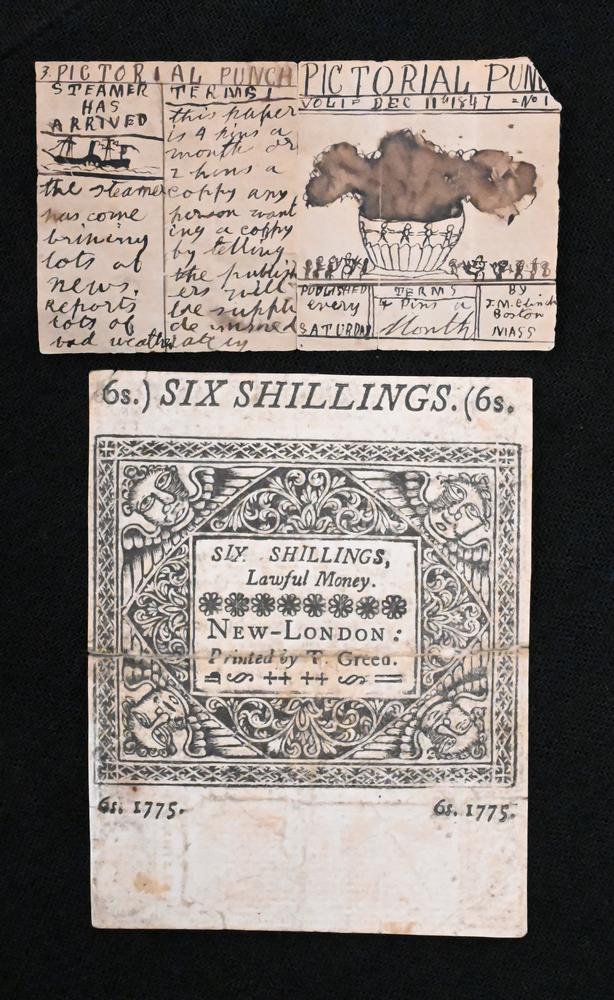 3. PICTORIAL PUNCH
STEAMER
HAS
ARRIVED
the steamer
has come
brining
lots of
news.
Reports
lots of
bad weath
TERMS!
this paper
is 4 pins a
month or
2 pins a
coppy any
person want
ing a coppy
by telling
the publish
ers will
be suppli
PICTORIAL PUN
VOL 1= DEC 11th 1847 =No 1
PUBLISHED
every
SATURDAY
TERMS
4 Pins a
Month
BY
Boston
MASS
6s.) SIX SHILLINGS. (6s.
SIX SHILLINGS,
Lawful Money.
NEW-LONDON:
Printed by T. Green.
6s. 1775.
6s. 1775.